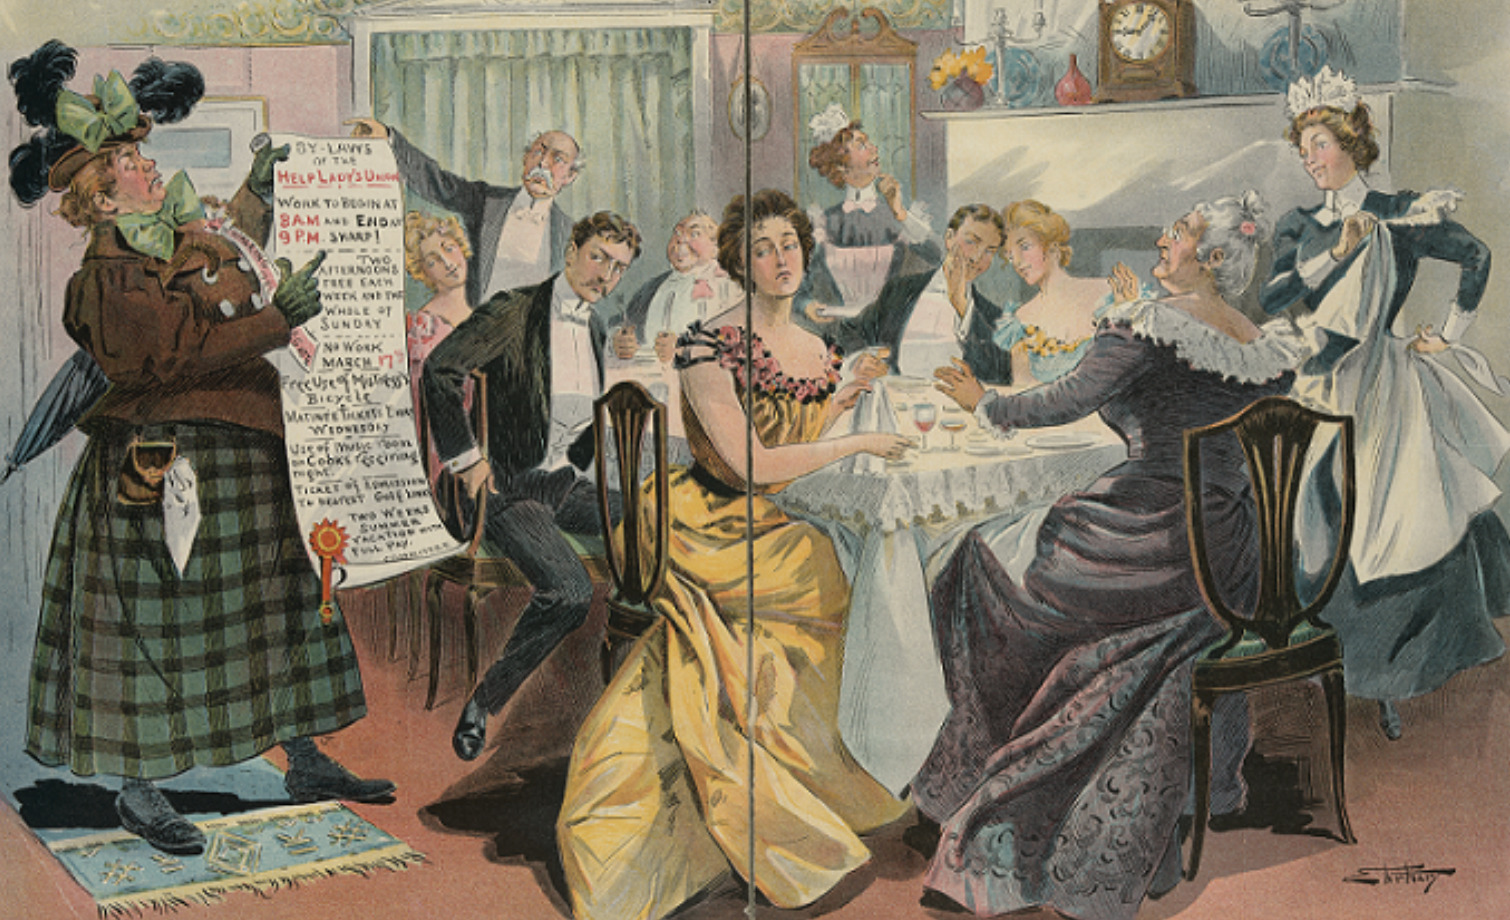 BY-LAWS
OF THE
HELP LADY'S UNION
WORK TO BEGIN AT
8 A.M AND END AT
9 P.M. SHARP!
TWO
AFTERNOONS
FREE EACH
WEEK AND THE
WHOLE OF
SUNDAY
NO WORK
MARCH 17TH
FREE USE OF MISTRESS'S
BICYCLE
MATINEE TICKETS EVERY
WEDNESDAY
USE OF MUSIC ROOM
ON COOK'S RECEIVING
NIGHT.
TICKET OF ADMISSION
TO NEAREST GOLF LINKS
TWO WEEKS
SUMMER
VACATION WITH
FULL PAY.